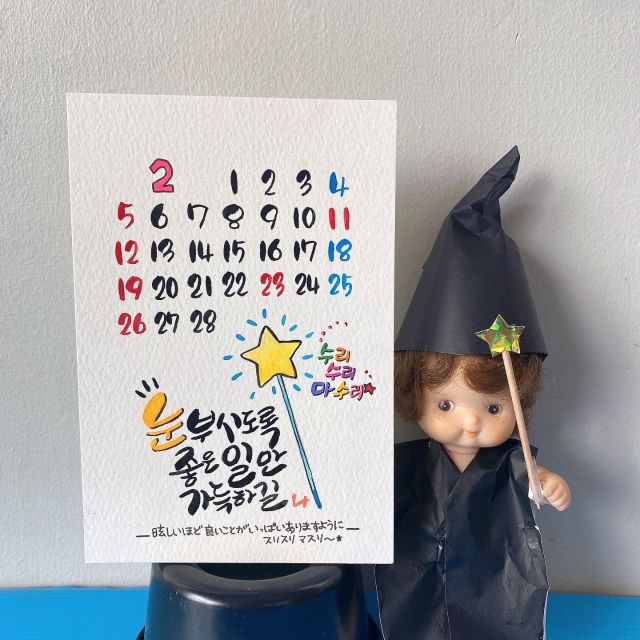 2 1 2 3 4
5 6 7 8 9 10 11
12 13 14 15 16 17 18
19 20 21 22 23 24 25
26 27 28
수리
수리
마수리
눈부시도록
좋은 일만
가득하길
眩しいほど良いことがいっぱいありますように
スリスリマスリ〜★